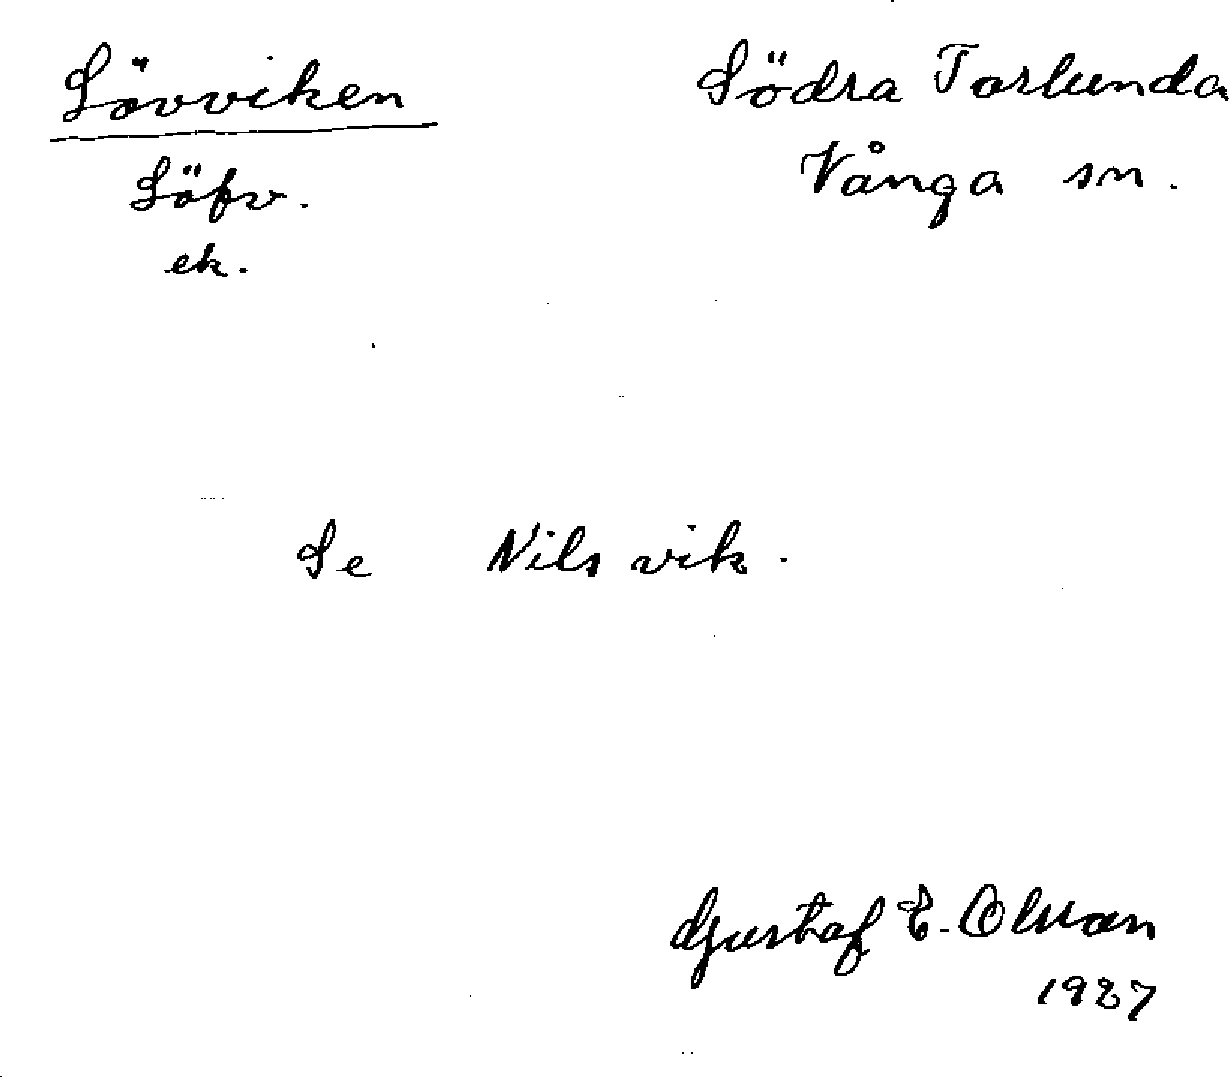 Lövviken
Löfv.
ek.
Södra Torlunda
Vånga sn.
Se Nilsvik.
Gustaf E. Olsson
1927